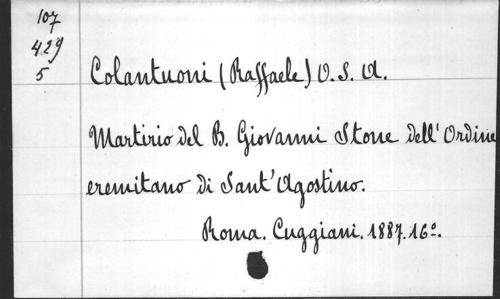 107
429
5
Colantuoni (Raffaele) O. S. A.
Martirio del B. Giovanni Stone dell'Ordine
eremitano di Sant'Agostino.
Roma. Cuggiani. 1887. 16º.